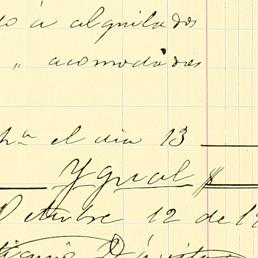 á alquilados
" acomodados
el dia 13
Ygual $
Octubre 12 de 1